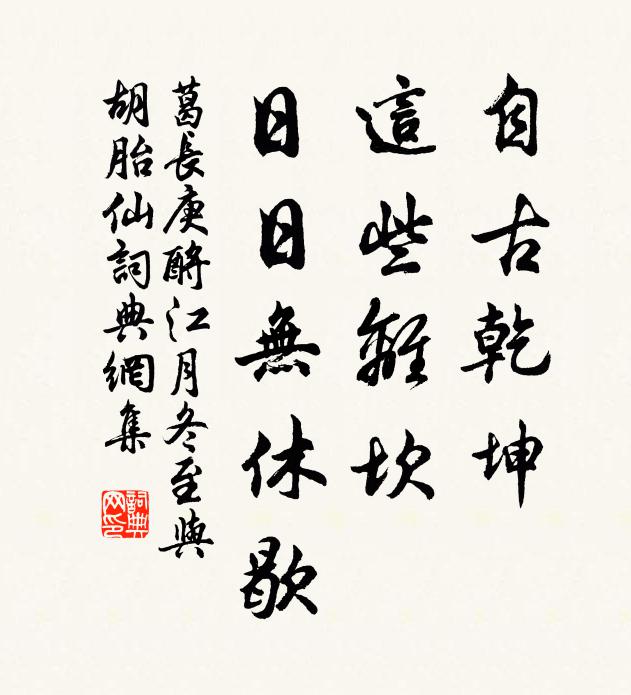 自古乾坤
這些離坎
日日無休歇
葛長庚酹江月冬至與
胡胎仙詞典網集
詞典网印